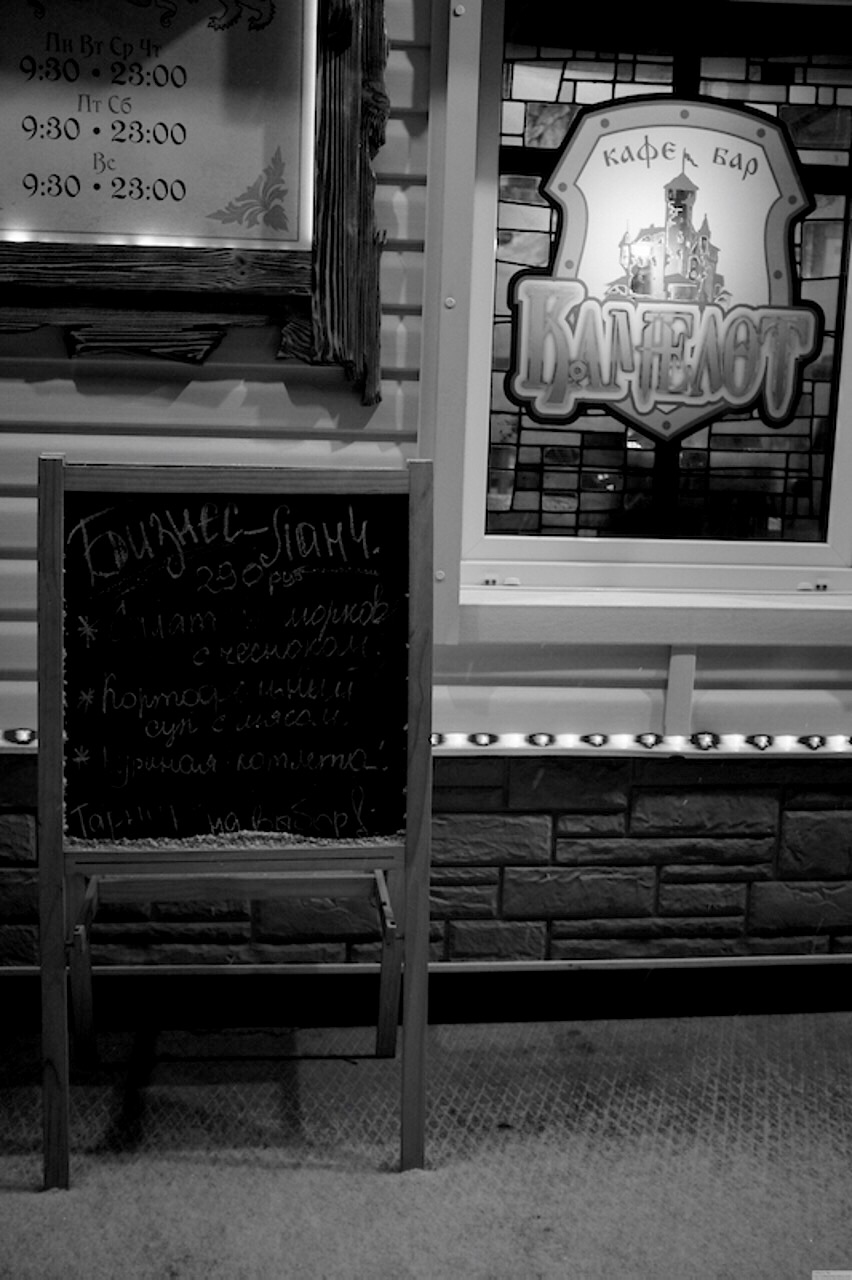 Пн Вт Ср Чт
9:30 • 23:00
Пт Сб
9:30 • 23:00
Вс
9:30 • 23:00
кафе бар
Камелот
Бизнес-Ланч.
290 руб
* Салат морков
с чесноком.
*
суп с мясом.
* Куриная котлета!
на выбор!